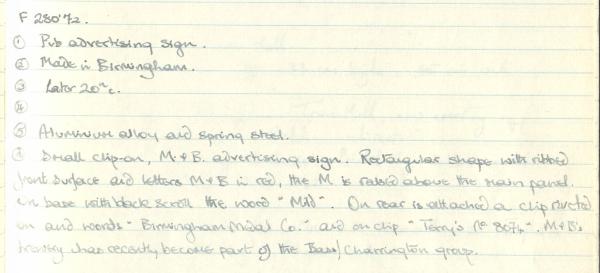 F 280'72.
① Pub advertising sign.
② Made in Birmingham.
③ Later 20th c.
④
⑤ Aluminium alloy and spring steel.
⑥ Small clip-on, M & B. advertising sign. Rectangular shape with ribbed
front surface and letters M & B in red, the M is raised above the main panel.
on base with black scroll the word "Mild". On rear is attached a clip riveted
on and words "Birmingham Medal Co." and on clip "Terry's No 807/4". M & B's
has recently become part of the Bass/Charrington group.